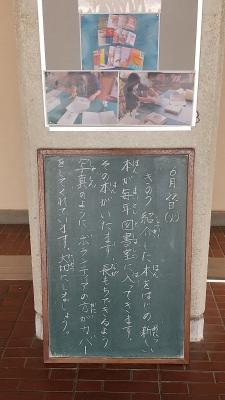 6月22日(火)
きのう紹介した本をはじめ新しい
本が毎年図書室に入ってきます。
その本がいたまず長もちできるよう
写真のようにボランティアの方がカバー
をしてくれています。大切にしましょう。